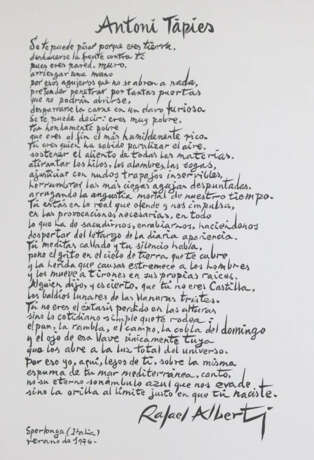 Antoni Tàpies
Se te puede pisar porque eres tierra,
deshacerse la frente contra ti
pues eres pared, muro,
arriesgar una mano
por esos agujeros que no se abren a nada,
pretender penetrar por tantas puertas
que no podrán abrirse,
desgarrarse la carne en un claro furioso.
Se te puede decir: eres muy pobre.
Tan hondamente pobre
que eres al fin el más humildemente rico.
Tú eres quien ha sabido paralizar el aire,
sostener el aliento de todas las materias,
atirantar los hilos, los alambres, las sogas,
ajusticiar con nudos trapajos inservibles,
herrumbrar las más ciegas agujas despuntadas,
arrugando la angustia mortal de nuestro tiempo.
Tú estás en lo real que ofende y nos impulsa,
en las provocaciones necesarias, en todo
lo que ha de sacudirnos, enrabiarnos, haciéndonos
despertar del letargo de la diaria apariencia.
Tú meditas callado y tu silencio habla,
pone el grito en el cielo de tierra que te cubre
y la herida que causas estremece a los hombres
y los mueve a tirones en sus propias raíces.
Alguien dijo, y es cierto, que tú no eres Castilla,
los baldíos lunares de las llanuras tristes.
Tú no eres el éxtasis perdido en las alturas
sino lo cotidiano simple que te rodea:
el pan, la rambla, el campo, la cobla del domingo
y el ojo de esa llave únicamente tuya
que los abre a la luz total del universo.
Por eso yo, aquí, lejos de ti, sobre la misma
espuma de tu mar mediterránea, canto,
no su eterno sonámbulo azul que nos evade,
sino la orilla al límite justo en que tú naciste.
Rafael Alberti
Sperlonga (Italia)
verano de 1974.